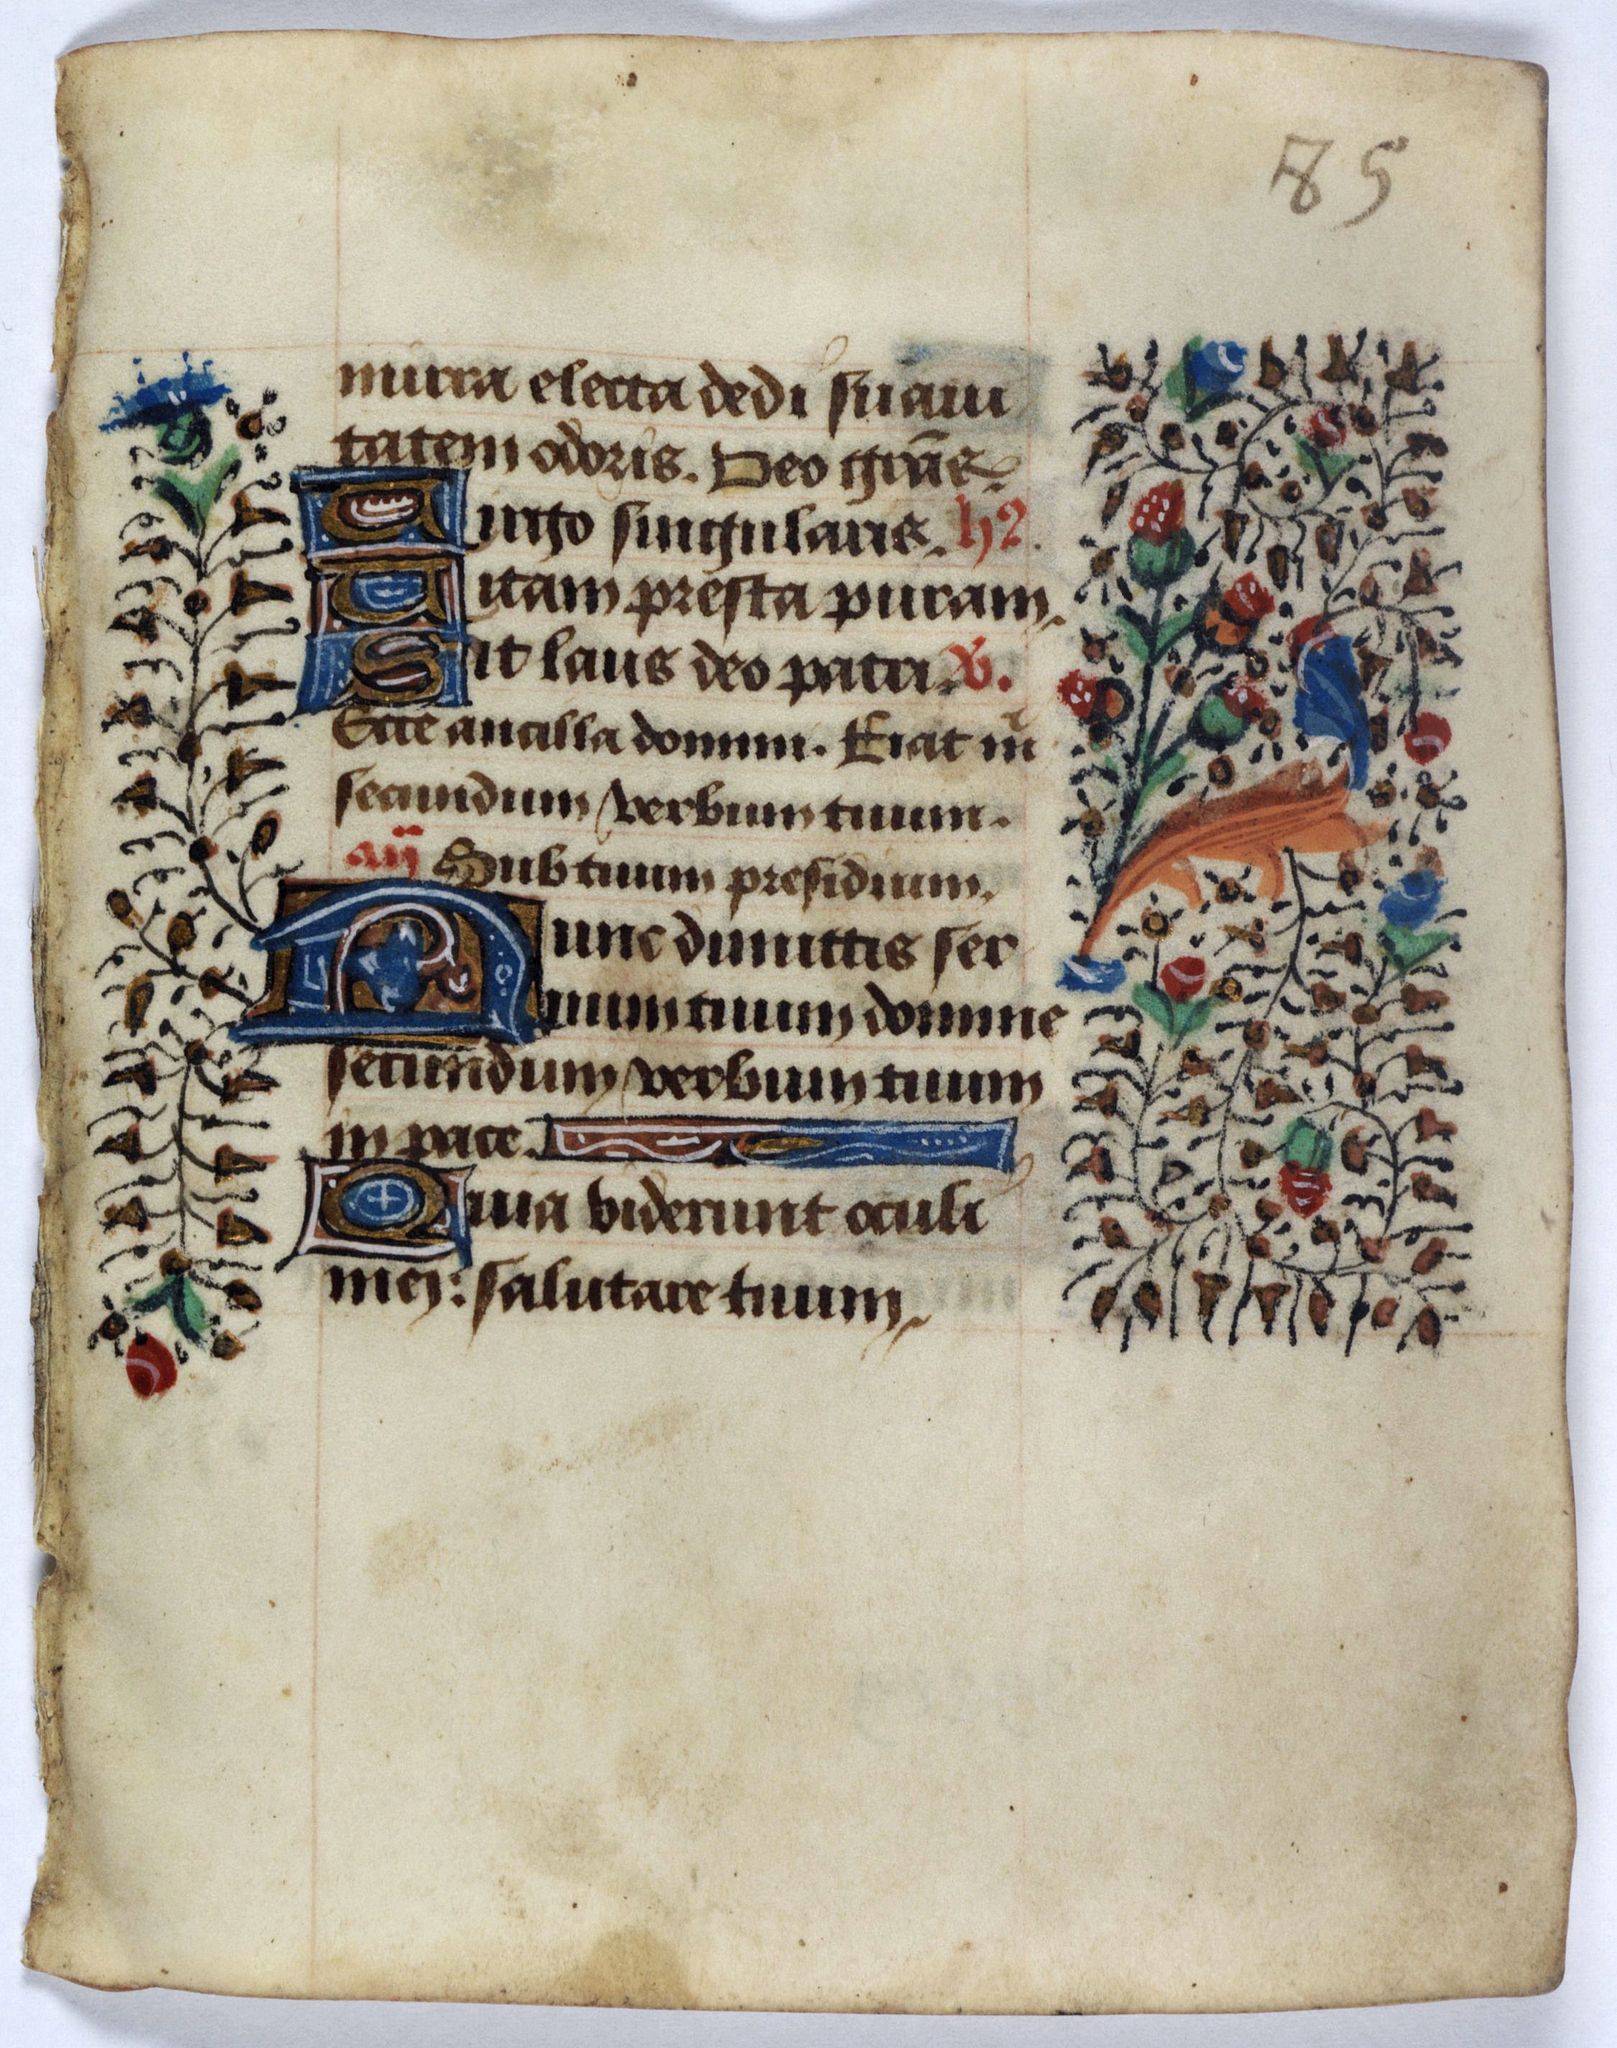 85
mirra electa dedi suaui
tatem odoris. Deo gr̄as.
Uirgo singularis. h2.
Uitam presta puram.
Sit laus deo patri. v.
Ecce ancilla domini. Fiat m̄
secundum verbum tuum.
añ Sub tuum presidium.
Nunc dimittis ser
uum tuum domine
secundum verbum tuum
in pace.
Quia viderunt oculi
mei: salutare tuum.